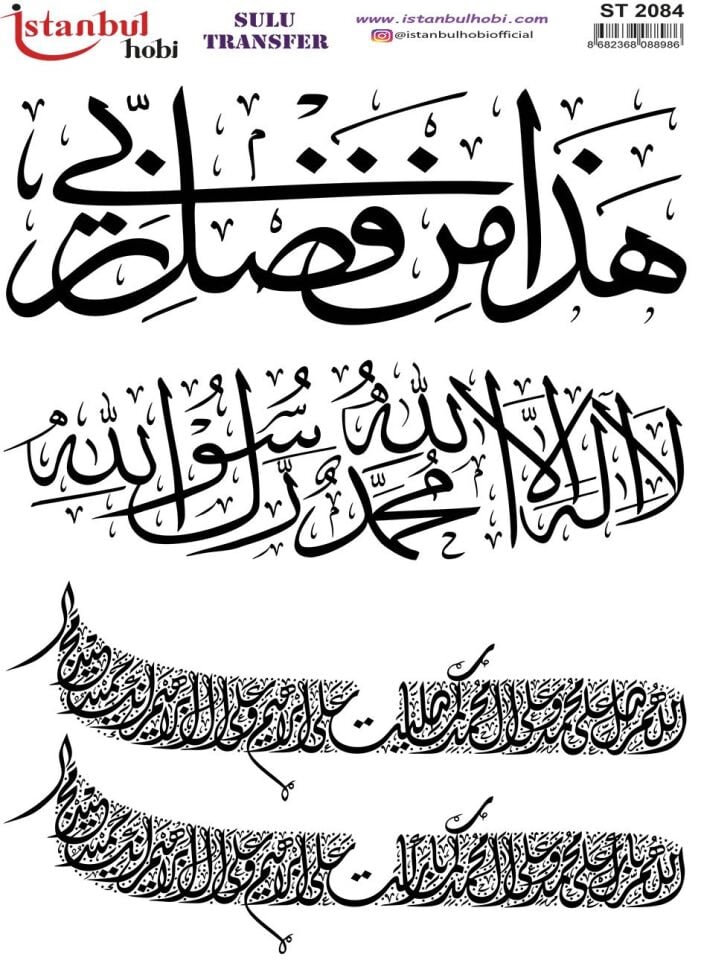 istanbul hobi
SULU TRANSFER
www.istanbulhobi.com
@istanbulhobiofficial
ST 2084
8 682368 088986
هَذَا مِنْ فَضْلِ رَبِّي
لا اله الا الله محمد رسول الله
اللهم صل على محمد وعلى ال محمد كما صليت على ابراهيم وعلى ال ابراهيم انك حميد مجيد
اللهم بارك على محمد وعلى ال محمد كما باركت على ابراهيم وعلى ال ابراهيم انك حميد مجيد